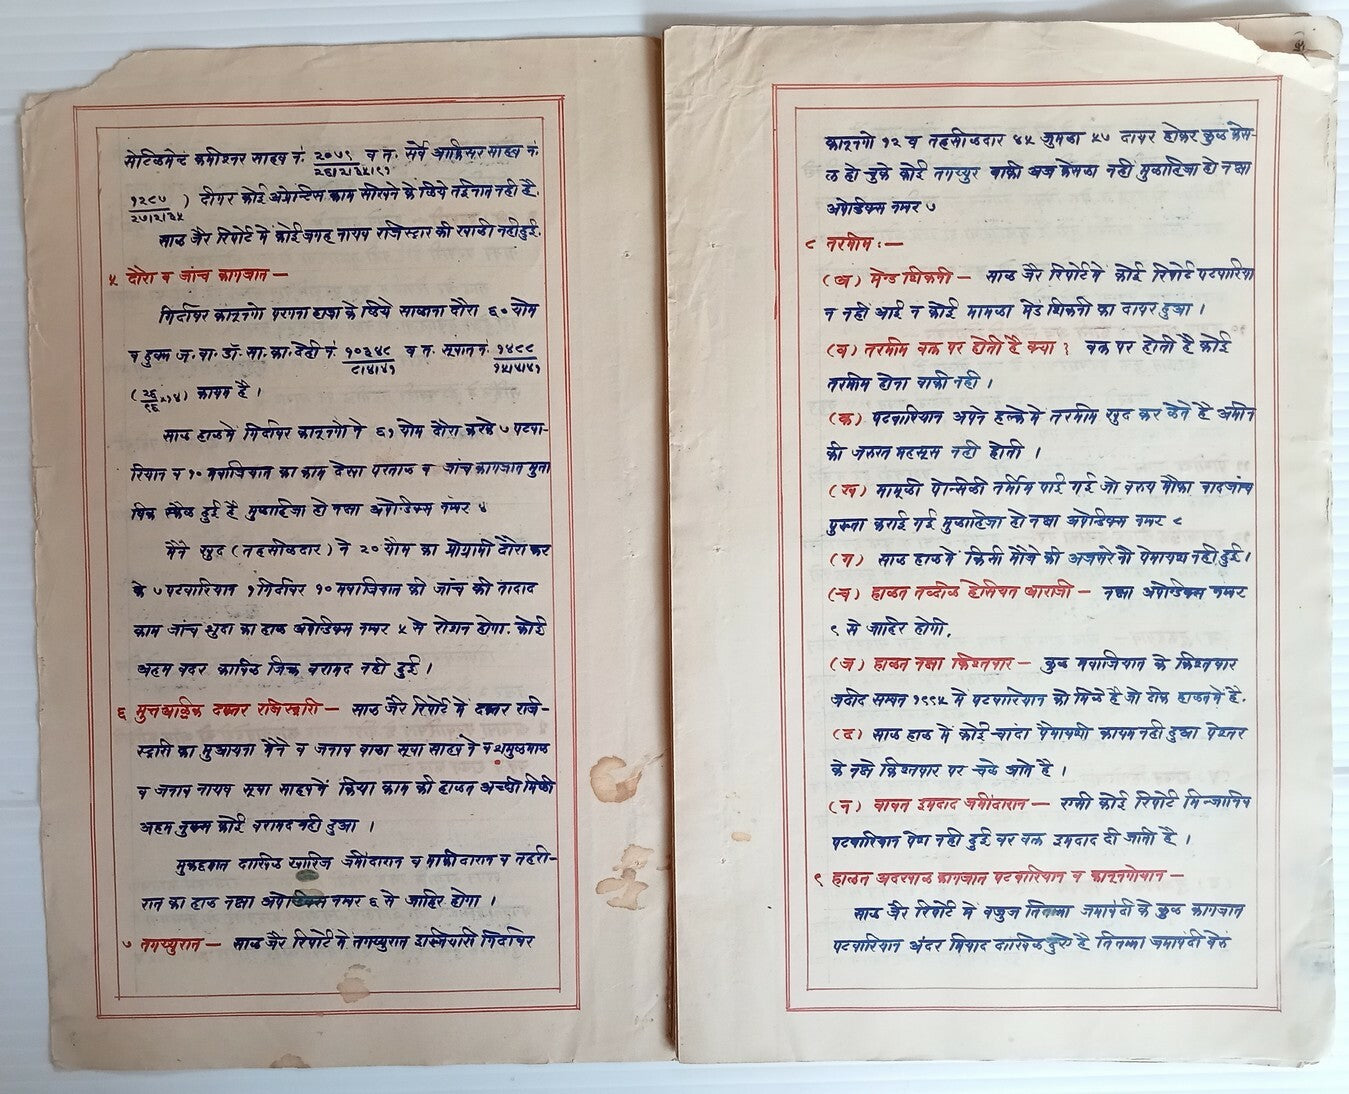 सेटिलमेन्ट कमीश्नर साहब नं. २०७९/२६/२/३५/९१ व नं. सर्वे आफिसर साहब नं.
१२८७/२७/२/३५ ) दीगर कोई अप्रेन्टिस काम सीखने के लिये तईनात नही है.
साल जैर रिपोर्ट मे कोई जगह नायब रजिस्ट्रार की खाली नही हुई.
५ दौरा व जांच कागजात —
गिर्दावर कानूनगो परगना हाजा के लिये सालाना दौरा ६० योम
व हुक्म ज. वा. डॉ. सा. का. देही नं. १०३४८/८/४/४१ व नं. सूबात नं. १४८८/१५/५/४१
कायम है ।
साल हालमे गिर्दावर कानूनगो ने ६१ योम दौरा करके ७ पटवा-
रियान व १० मवाजियात का काम देखा परताल व जांच कागजात मुता
बिक स्केल हुई है मुलाहिजा हो नक्षा अपेन्डिक्स नम्बर ४
मैने खुद (तहसीलदार) ने २० योम का प्रोग्रामी दौरा कर
के ७ पटवारियान १ गिर्दावर १० मवाजियात की जांच की तादाद
काम जांच सुदा का हाल अपेंडिक्स नम्बर ५ से रोशन होगा. कोई
अहम बदर काबिल जिक्र बरामद नही हुई ।
६ मुत्तआल्लिक दफ्तर रजिस्ट्रारी — साल जैर रिपोर्ट में दफ्तर रजि-
स्ट्रारी का मुआयना मैने व जनाब वाला सूबा साहब ने व शमुलमाल
व जनाब नायब सूबा साहबने किया काम की हालत अच्छी मिली
अहम नुक्स कोई बरामद नही हुआ ।
मुकद्दमात दाखिल खारिज जमींदारान व माफीदारान व तहरी-
रात का हाल नक्षा अपेन्डिक्स नम्बर ६ से जाहिर होगा ।
७ तगय्युरात — साल जैर रिपोर्ट मे तगय्युरात इस्तियारी गिर्दावर
कानूनगो १२ व तहसीलदार ४५ जुमला ५७ दायर होकर कुल फैस-
ल हो चुके कोई तगय्युर बाकी अज फैसला नही मुलाहिजा हो नक्षा
अपेंडिक्स नम्बर ७
८ तरमीम :—
(अ) मेन्ड शिकनी — साल जैर रिपोर्टमे कोई रिपोर्ट पटवारिया
न नही आई न कोई मामला मेड शिकनी का दायर हुआ ।
(ब) तरमीम वक्त पर होती है क्या ? वक्त पर होती है कोई
तरमीम होना बाकी नही ।
(क) पटवारियान अपने हल्केमे तरमीम खुद कर लेते है अमीन
की जरुरत महसूस नही होती ।
(ख) मामूली पेन्सिली तर्मीम पाई गई जो बरुय मौका बादजांच
पुख्ता कराई गई मुलाहिजा हो नक्षा अपेन्डिक्स नम्बर ८
(ग) साल हालमे किसी मौजे की अजसरे नौ पेमायश नही हुई ।
(च) हालत तब्दील हेसियत आराजी — नक्षा अपेन्डिक्स नम्बर
९ से जाहिर होगी.
(ज) हालत नक्षा किश्तवार — कुल मवाजियात के किश्तवार
जदीद सम्वत १९९५ मे पटवारियान को मिले है जो ठीक हालतमे है.
(द) साल हाल में कोई चांदा पैमायशी कायम नही हुआ पेश्तर
के नक्षे किश्तवार पर चले आते है ।
(न) बाबत इमदाद जमींदारान — एसी कोई रिपोर्ट मिन्जानिब
पटवारियान पेश नही हुई बर वक्त इमदाद दी जाती है ।
९ हालत अदखाल कागजात पटवारियान व कानूनगोयान —
साल जैर रिपोर्ट मे बजुज तितम्मा जमाबंदी के कुल कागजात
पटवारियान अंदर मियाद दाखिल हुए है तितम्मा जमाबंदी